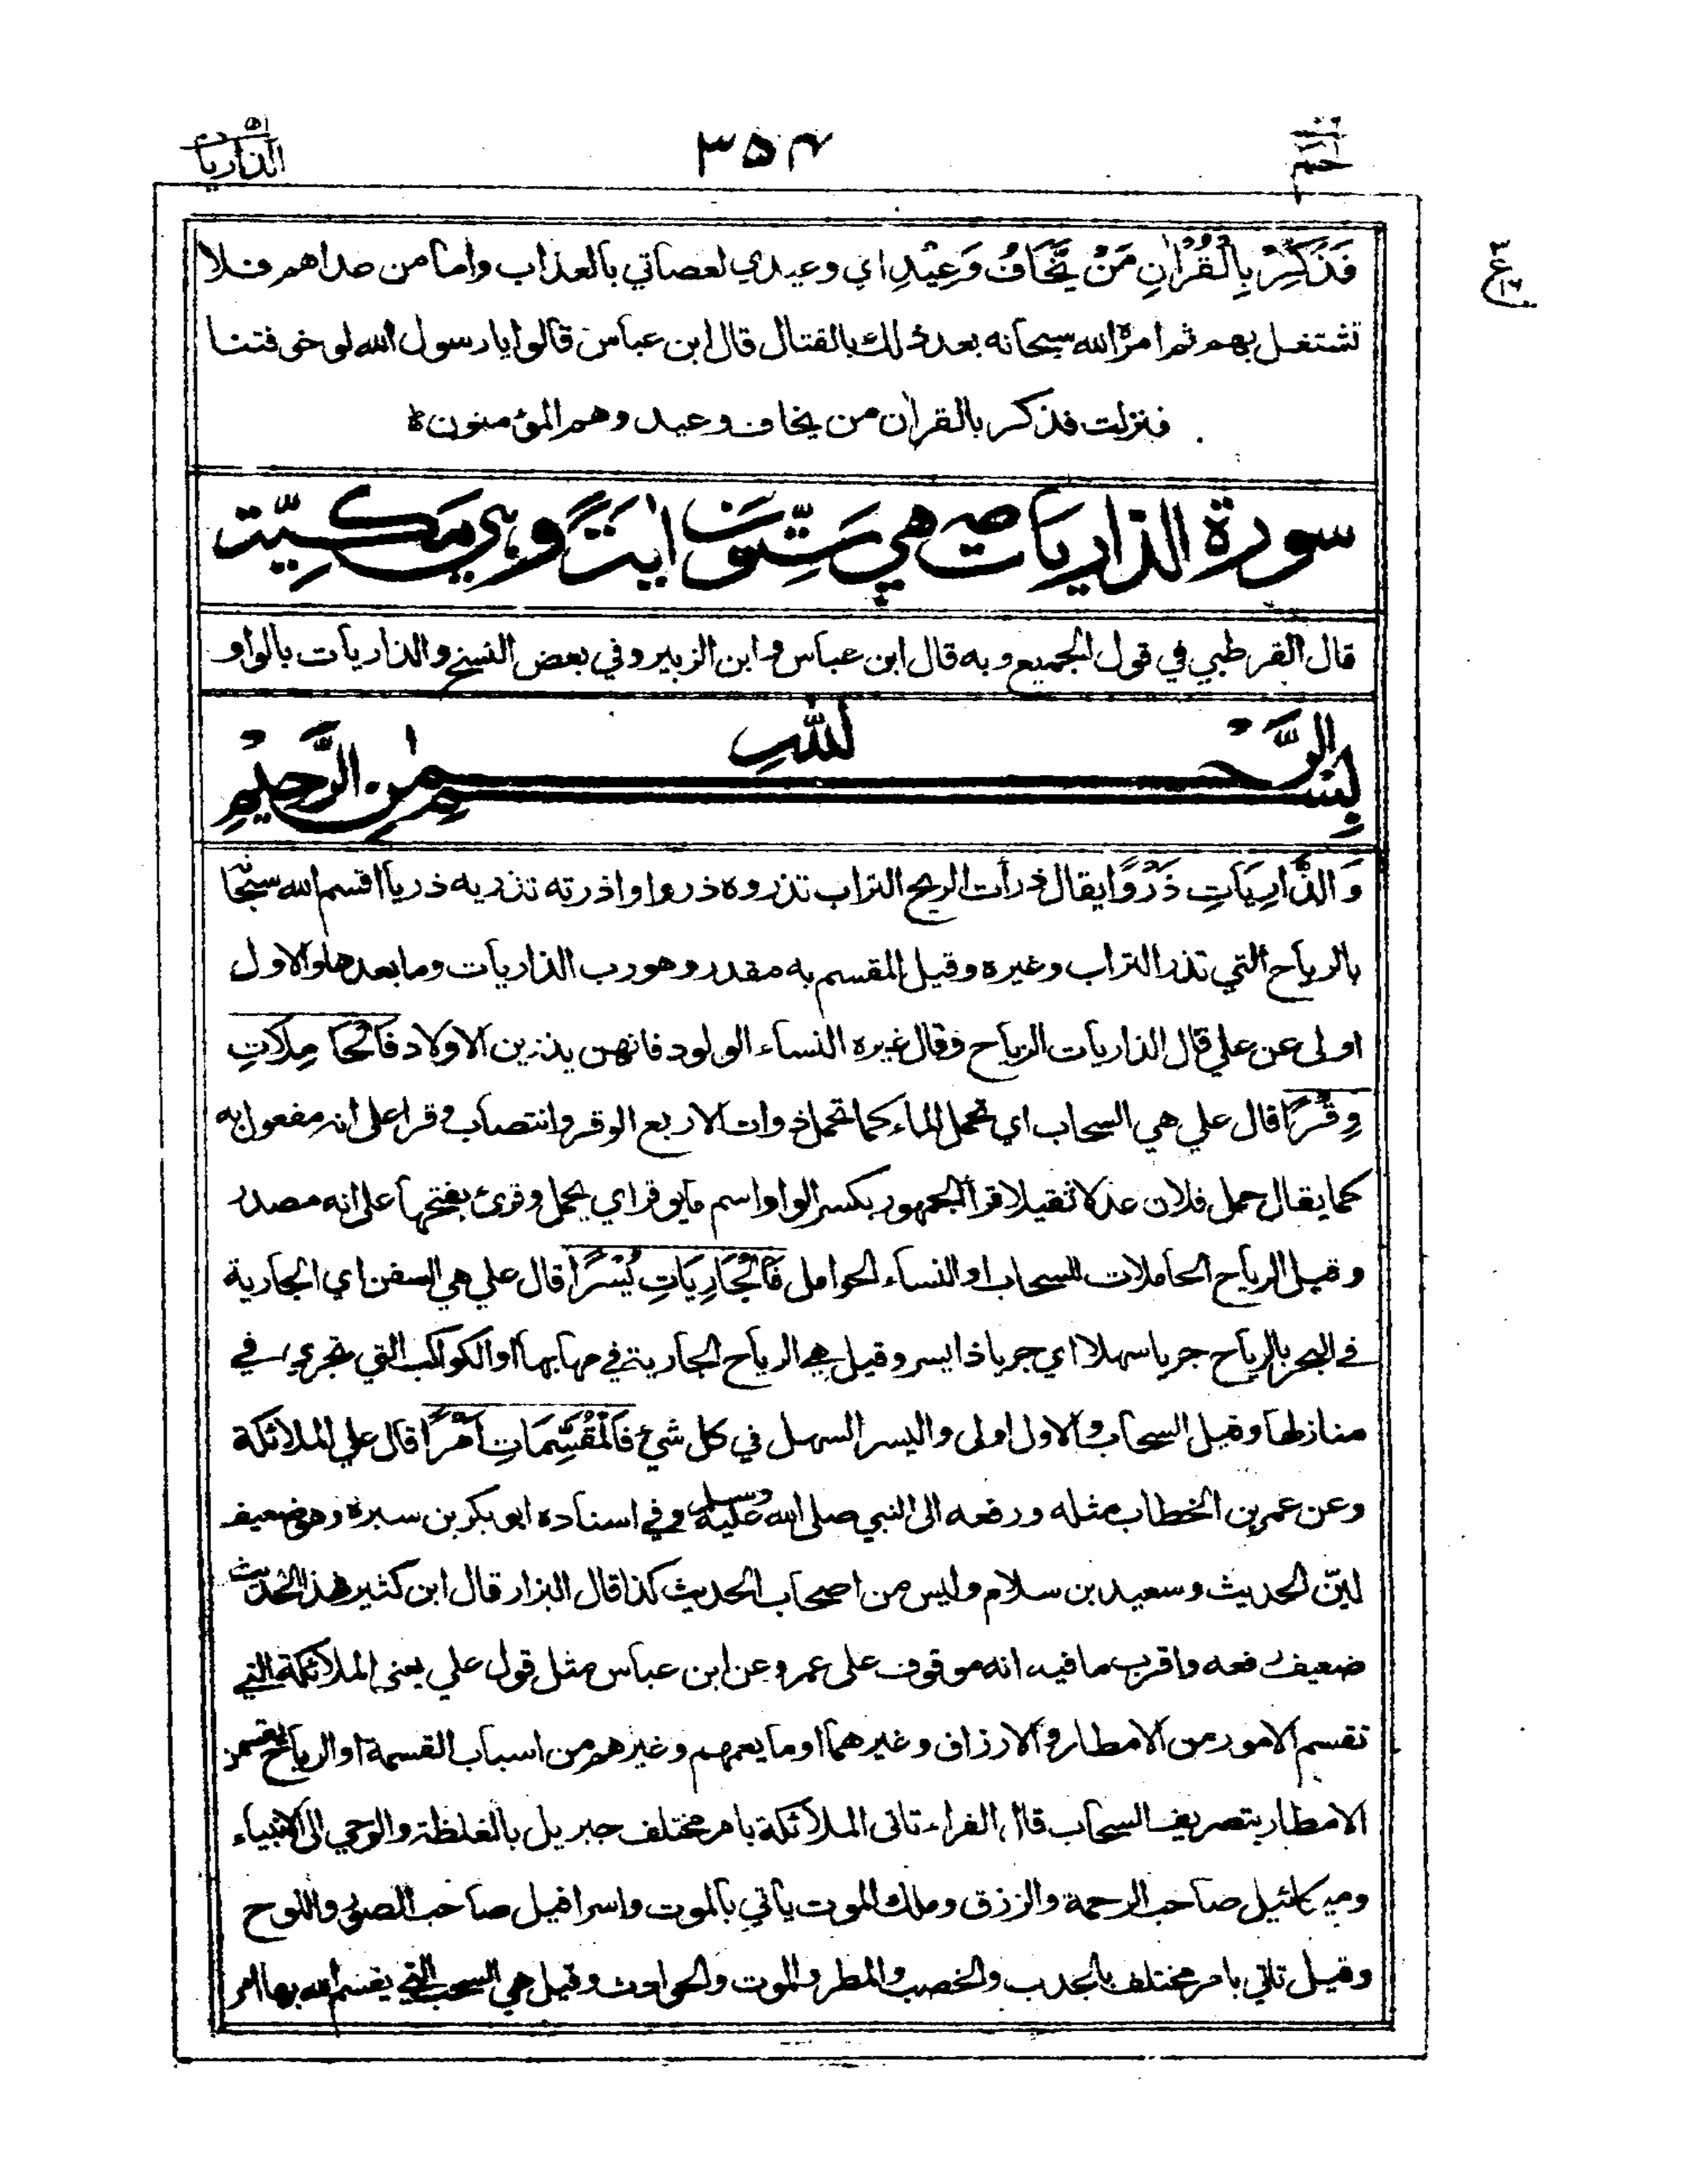 حم
٣٥٤
الذاريات ٥١
فَذَكِّرْ بِالْقُرْاٰنِ مَنْ يَّخَافُ وَعِيْدِ اي وعيدي لعصاتي بالعذاب واما من عداهم فلا
تشتغل بهم ثم امره الله سبحانه بعد ذلك بالقتال قال ابن عباس قالوا يا رسول الله لو خوفتنا
فنزلت فذكر بالقران من يخاف وعيد وهم المؤمنون ط
سورة الذاريات هي سِتُّونَ اٰيَةً وَهِيَ مَكِّيَّة
قال القرطبي في قول الجميع وبه قال ابن عباس وابن الزبير وفي بعض النسخ والذاريات بالواو
بِسْمِ اللهِ الرَّحْمٰنِ الرَّحِيْمِ
وَالذَّارِيَاتِ ذَرْوًا يقال ذرأت الريح التراب تذروه ذروا واذرته تذريه ذريا اقسم الله سبحانه
بالرياح التي تذر التراب وغيره وقيل المقسم به مقدر وهو رب الذاريات وما بعدها والاول
اولى عن علي قال الذاريات الرياح وقال غيره النساء الولود فانهن يذرين الاولاد فَالْحَامِلَاتِ
وِقْرًا قال علي هي السحاب اي تحمل الماء كما تحمل ذوات الاربع الوقر وانتصاب وقرا على انه مفعول به
كما يقال حمل فلان عدلا ثقيلا قرأ الجمهور بكسر الواو اسم مايوقر اي يحمل وقرئ بفتحها على انه مصدر
وقيل الرياح الحاملات للسحاب او النساء الحوامل فَالْجَارِيَاتِ يُسْرًا قال علي هي السفن اي الجارية
في البحر بالرياح جريا سهلا اي جريا ذا يسر وقيل هي الرياح الجارية في مهابها او الكواكب التي تجري في
منازلها وقيل السحاب والاول اولى واليسر السهل في كل شيئ فَالْمُقَسِّمَاتِ اَمْرًا قال علي الملائكة
وعن عمر بن الخطاب مثله ورفعه الى النبي صلى الله عليه وسلم وفي اسناده ابو بكر بن سبرة وهو ضعيف
لين الحديث وسعيد بن سلام وليس من اصحاب الحديث كذا قال البزار قال ابن كثير هذا الحديث
ضعيف رفعه واقرب ما فيه انه موقوف على عمر وعن ابن عباس مثل قول علي يعني الملائكة التي
تقسم الامور من الامطار والارزاق وغيرهما او ما يعمهم وغيرهم من اسباب القسمة او الرياح يقسمن
الامطار بتصريف السحاب قال الفراء تاتى الملائكة بامر مختلف جبريل بالغلظة والوحي الى الانبياء
وميكائيل صاحب الرحمة والرزق وملك الموت ياتي بالموت واسرافيل صاحب الصور واللوح
وقيل تاتي بامر مختلف بالجدب والخصب والمطر والموت والحوادث وقيل هي السحب التي يقسم الله بها امر